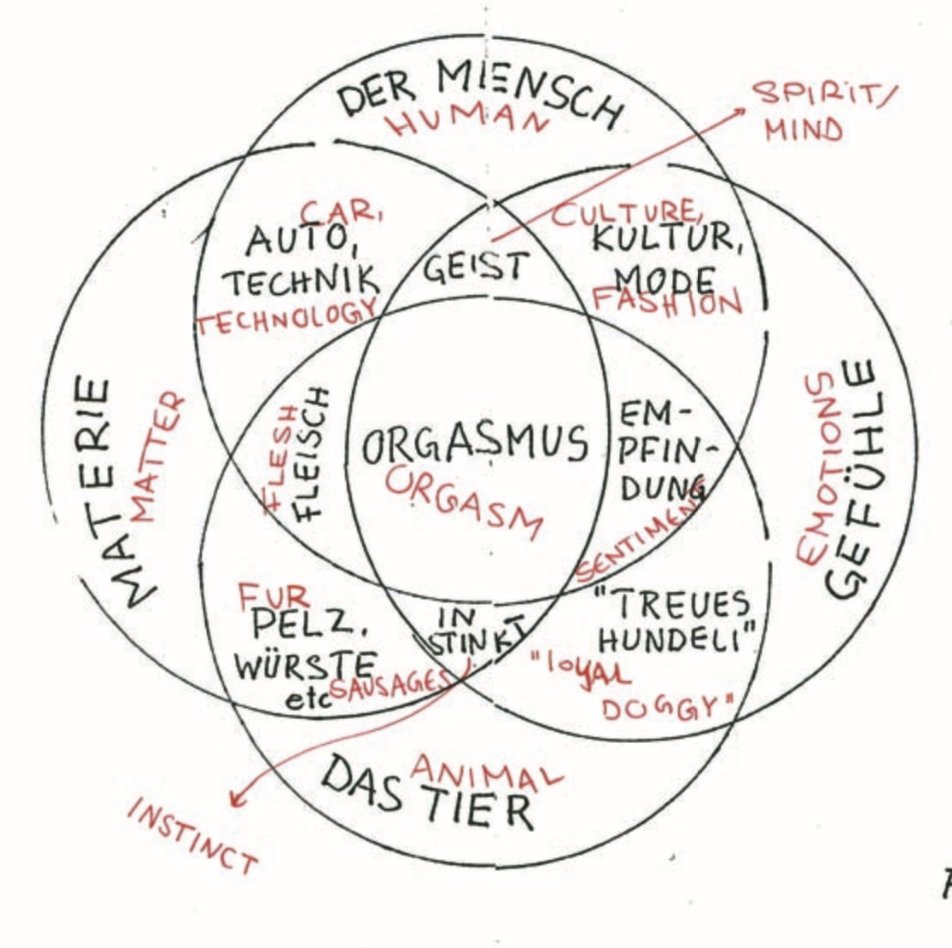 DER MENSCH
HUMAN
SPIRIT/
MIND
CAR,
AUTO,
TECHNIK
TECHNOLOGY
GEIST
CULTURE,
KULTUR,
MODE
FASHION
MATERIE
MATTER
FLESH
FLEISCH
ORGASMUS
ORGASM
EM-
PFIN-
DUNG
SENTIMENT
EMOTIONS
GEFÜHLE
FUR
PELZ,
WÜRSTE
etc SAUSAGES
IN
STINKT
"TREUES
HUNDELI"
"loyal
DOGGY"
DAS TIER
ANIMAL
INSTINCT